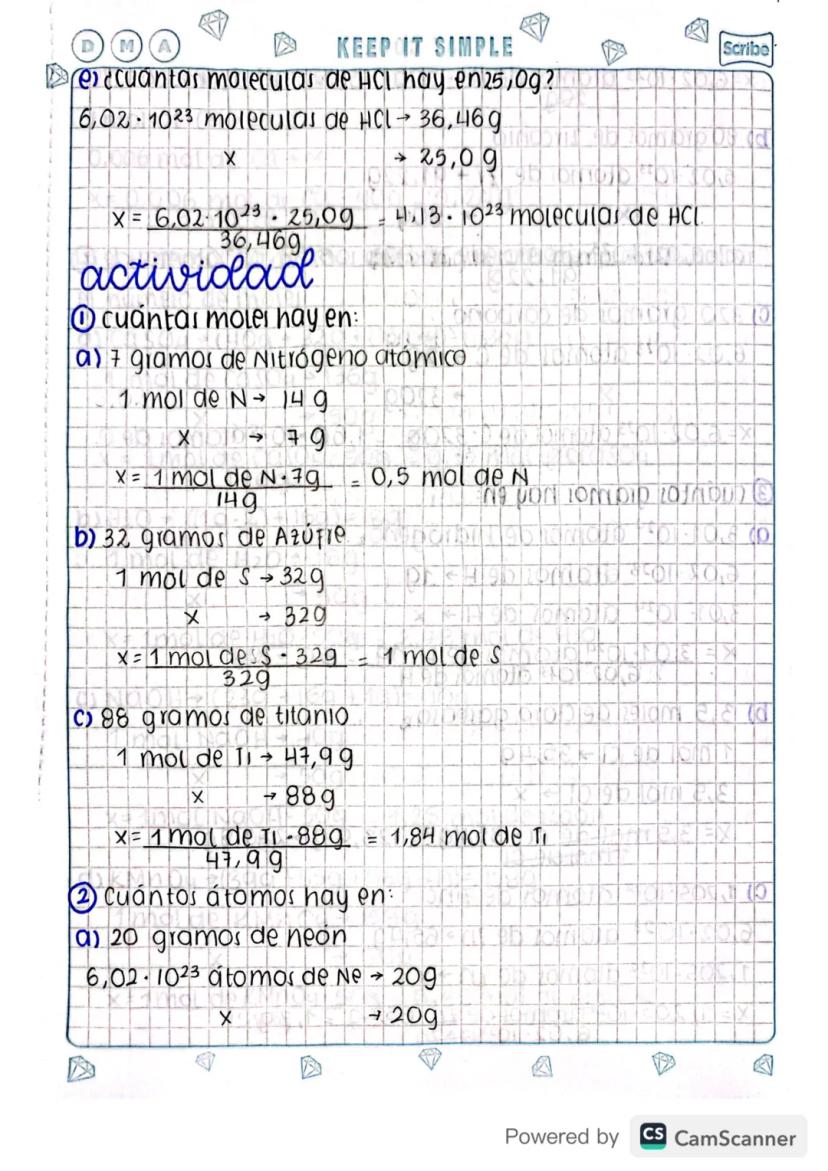 D M A KEEP IT SIMPLE Scribe
e) ¿Cuántas moleculas de HCl hay en 25,0g?
6,02 · 10²³ moleculas de HCl → 36,46g
x → 25,0 g
x = 6,02·10²³ · 25,0g = 4,13 · 10²³ moleculas de HCl.
36,46g
actividad
① cuántas moles hay en:
a) 7 gramos de Nitrógeno atómico
1 mol de N → 14 g
x → 7 g
x = 1 mol de N · 7g = 0,5 mol de N
14g
b) 32 gramos de Azúfre
1 mol de S → 32g
x → 32g
x = 1 mol de S · 32g = 1 mol de S
32g
c) 88 gramos de titanio
1 mol de Ti → 47,9g
x → 88g
x = 1 mol de Ti · 88g = 1,84 mol de Ti
47,9g
② Cuántos átomos hay en:
a) 20 gramos de neón
6,02 · 10²³ átomos de Ne → 20g
x → 20g
Powered by CS CamScanner